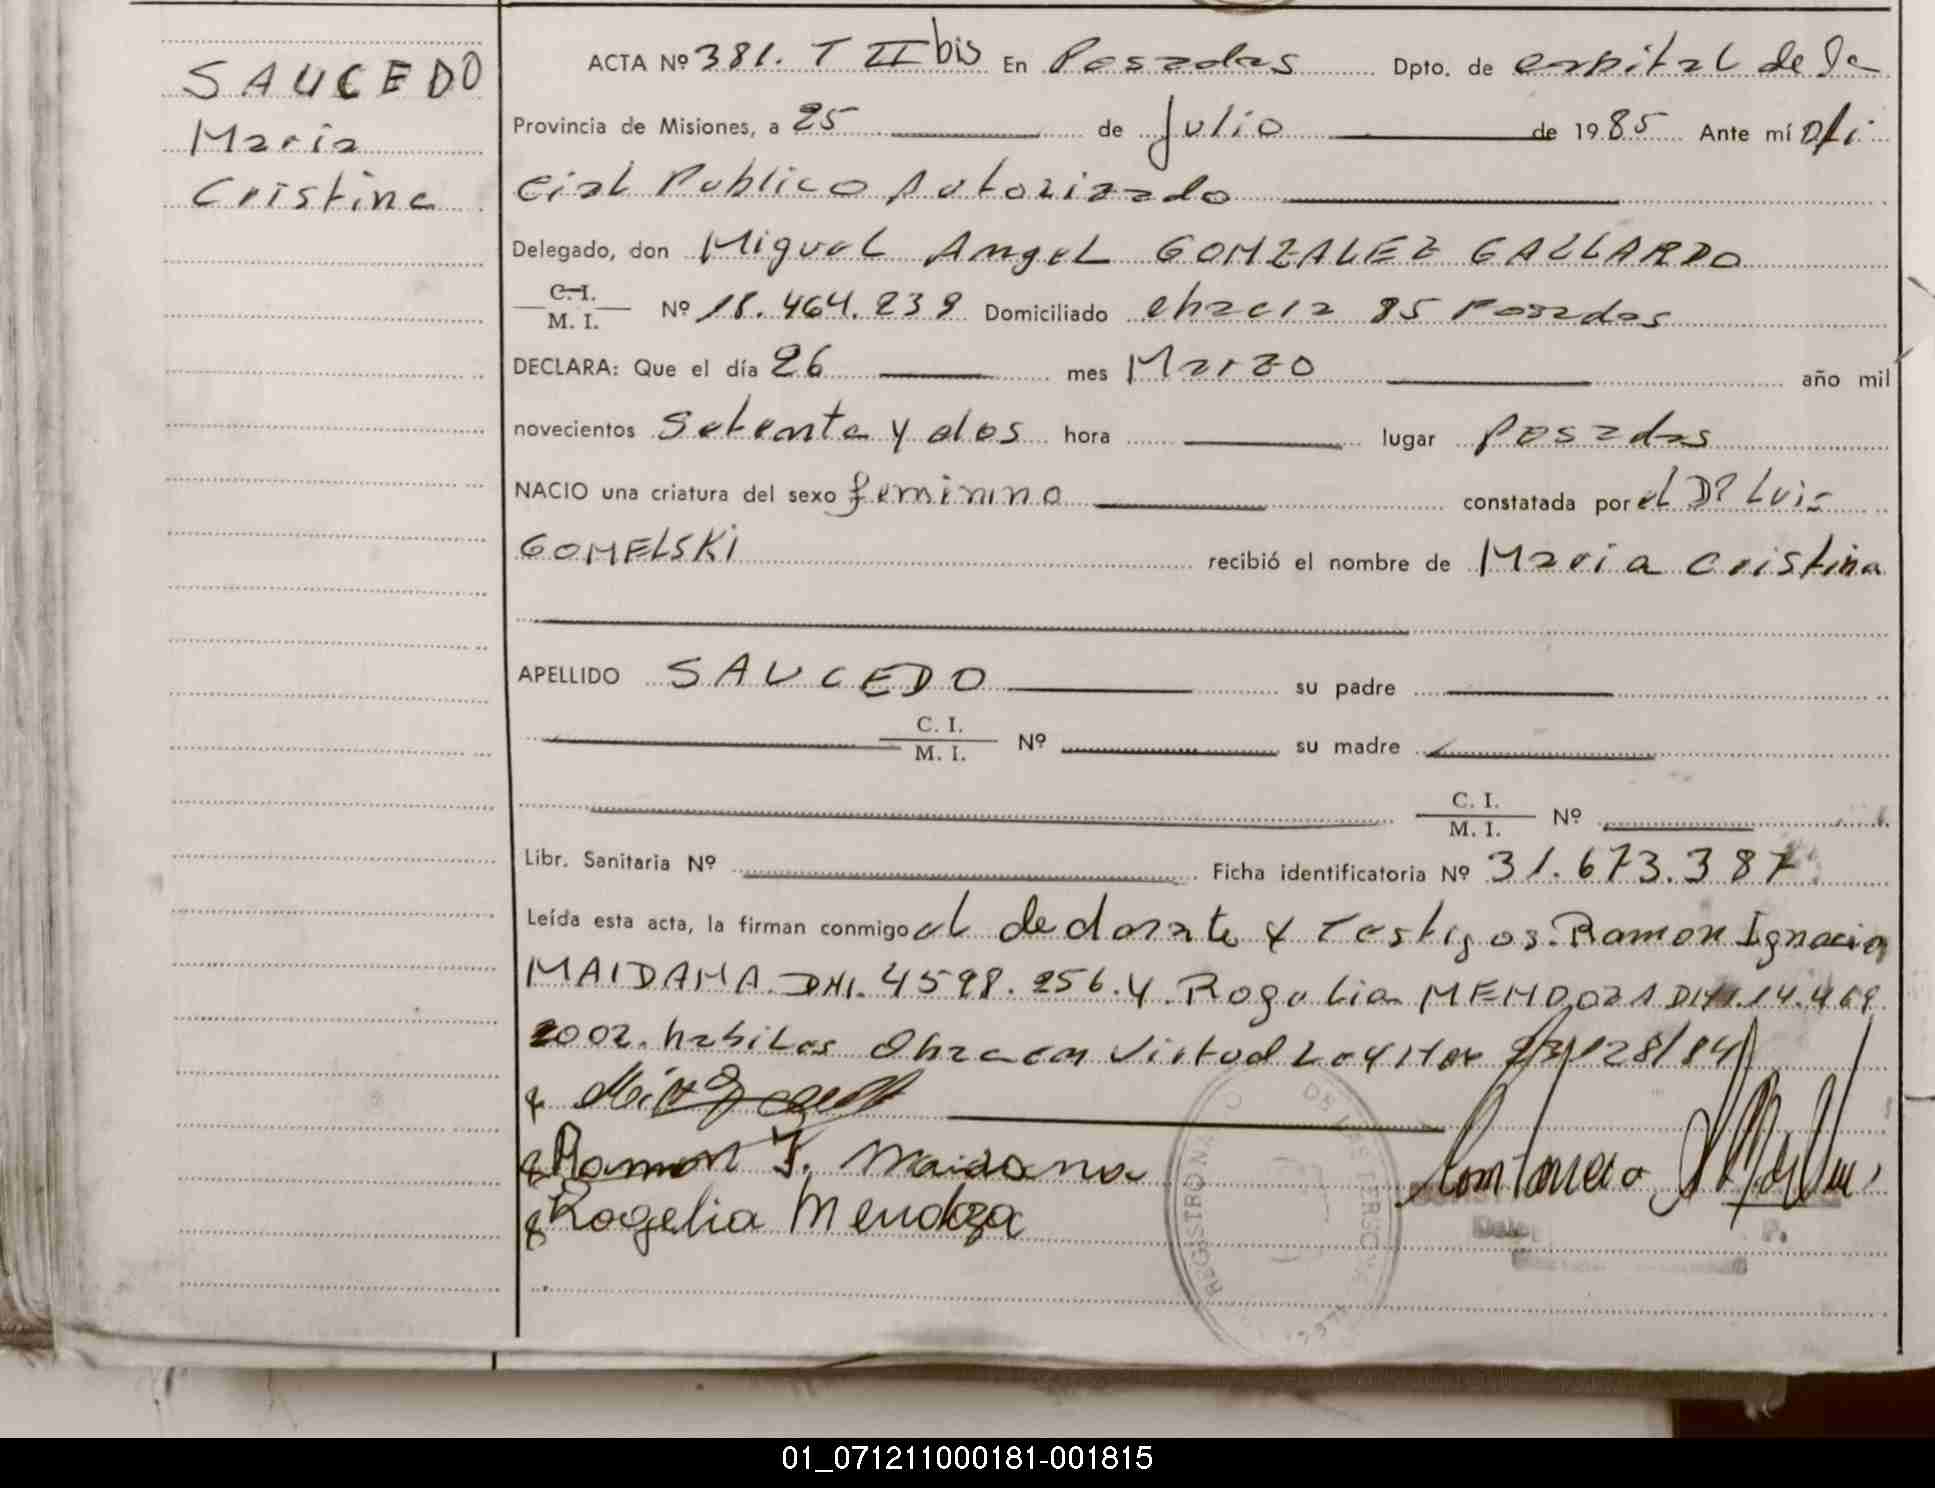 SAUCEDO
Maria
Cristina
ACTA Nº 381. T II bis En Posadas Dpto. de capital de la
Provincia de Misiones, a 25 de Julio de 1985 Ante mí ofi
cial Publico Autorizado
Delegado, don Miguel Angel GONZALEZ GALLARDO
C. I.
M. I. Nº 18.464.239 Domiciliado chacra 85 Posadas
DECLARA: Que el día 26 mes Marzo año mil
novecientos setenta y dos hora lugar Posadas
NACIO una criatura del sexo femenino constatada por el Dr Luis
GOMELSKI recibió el nombre de Maria Cristina
APELLIDO SAUCEDO su padre
C. I.
M. I. Nº su madre
C. I.
M. I. Nº
Libr. Sanitaria Nº Ficha identificatoria Nº 31.673.387
Leída esta acta, la firman conmigo el declarante y Testigos. Ramon Ignacio
MAIDANA. DNI. 4598.256. y Rogelia MENDOZA DNI. 14.469
2002. habiles Obra en Virtud Ley Nac 23/128/84
Ramon I. Maidana
Rogelia Mendoza
REGISTRO NA C DE LAS PERSONA
Dele
P.
01_071211000181-001815